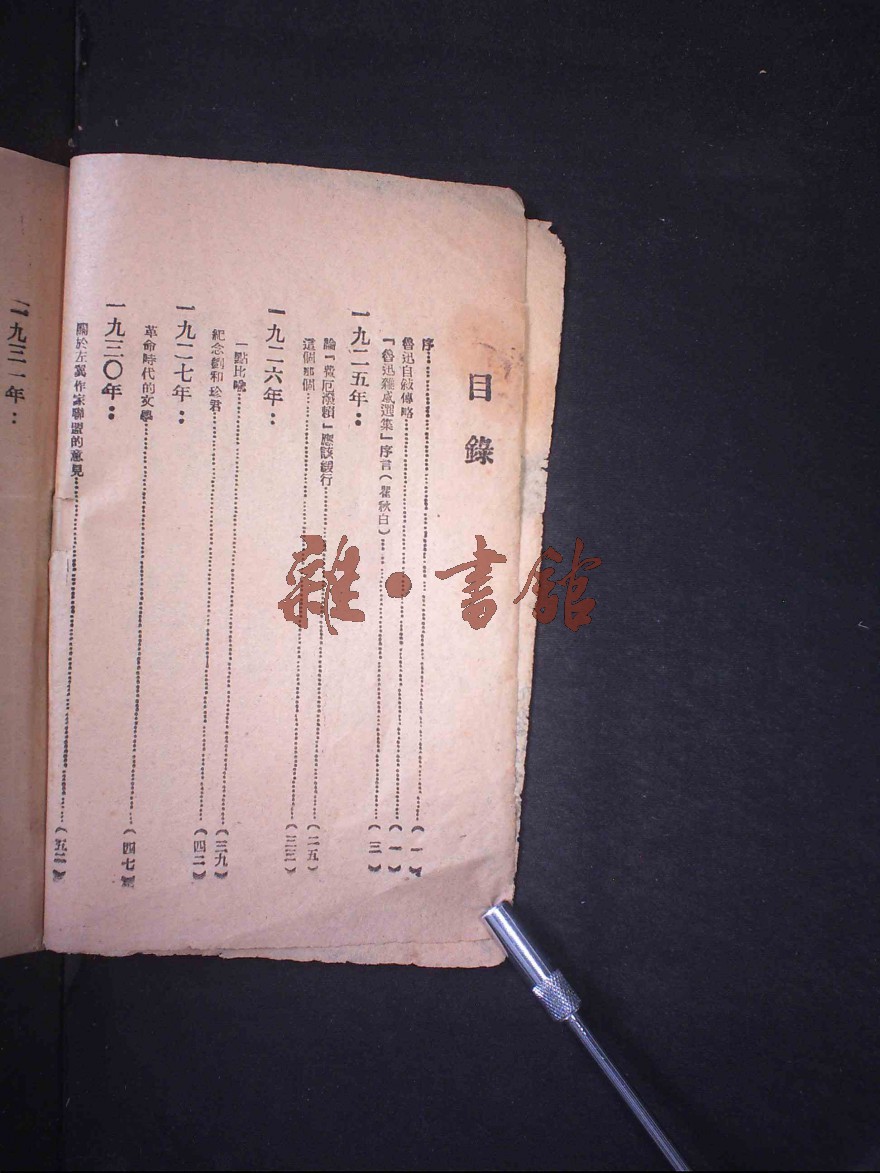 目錄
序……(一)
魯迅自敍傳略……(一)
『魯迅雜感選集』序言(瞿秋白)……(三)
一九二五年:
論『費厄潑賴』應該緩行……(二五)
這個那個……(三三)
一九二六年:
一點比喻……(三九)
紀念劉和珍君……(四二)
一九二七年:
革命時代的文學……(四七)
一九三〇年:
關於左翼作家聯盟的意見……(五二)
一九三一年:
雜·書館